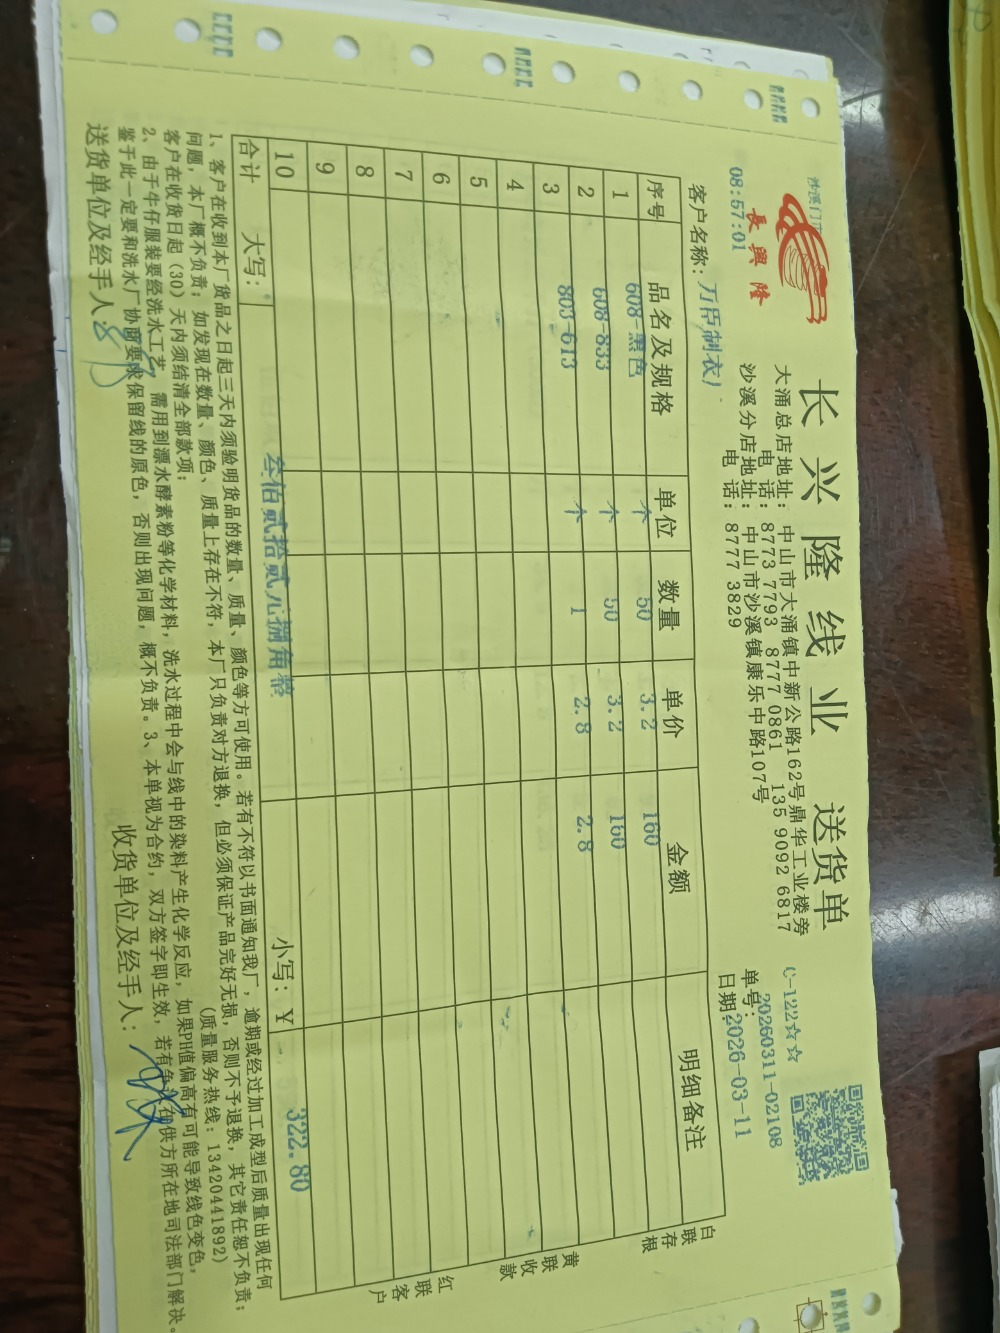 沙溪门市
長興隆
08:57:01
长兴隆线业 送货单
大涌总店地址：中山市大涌镇中新公路162号鼎华工业楼旁
电话：8773 7793 8777 0861 135 9092 6817
沙溪分店地址：中山市沙溪镇康乐中路107号
电话：8777 3829
C-122☆☆
单号：20260311-02108
日期：2026-03-11
客户名称：万臣制衣厂
序号 品名及规格 单位 数量 单价 金额 明细备注
1 608-黑色 个 50 3.2 160
2 608-833 个 50 3.2 160
3 803-613 个 1 2.8 2.8
4
5
6
7
8
9
10
合计 大写： 叁佰贰拾贰元捌角整 小写：￥ 322.80
白联存根
黄联收款
红联客户
1、客户在收到本厂货品之日起三天内须验明货品的数量、质量、颜色等方可使用。若有不符以书面通知我厂，逾期或经过加工成型后质量出现任何
问题，本厂概不负责；如发现在数量、颜色、质量上存在不符，本厂只负责对方退换，但必须保证产品完好无损，否则不予退换，其它责任恕不负责；
客户在收货日起（30）天内须结清全部款项； （质量服务热线：13420441892）
2、由于牛仔服装要经洗水工艺，需用到漂水酵素粉等化学材料，洗水过程中会与线中的染料产生化学反应，如果PH值偏高有可能导致线色变色，
鉴于此一定要和洗水厂协商要求保留线的原色，否则出现问题，概不负责。3、本单视为合约，双方签字即生效，若有争议在供方所在地司法部门解决。
送货单位及经手人：
收货单位及经手人：